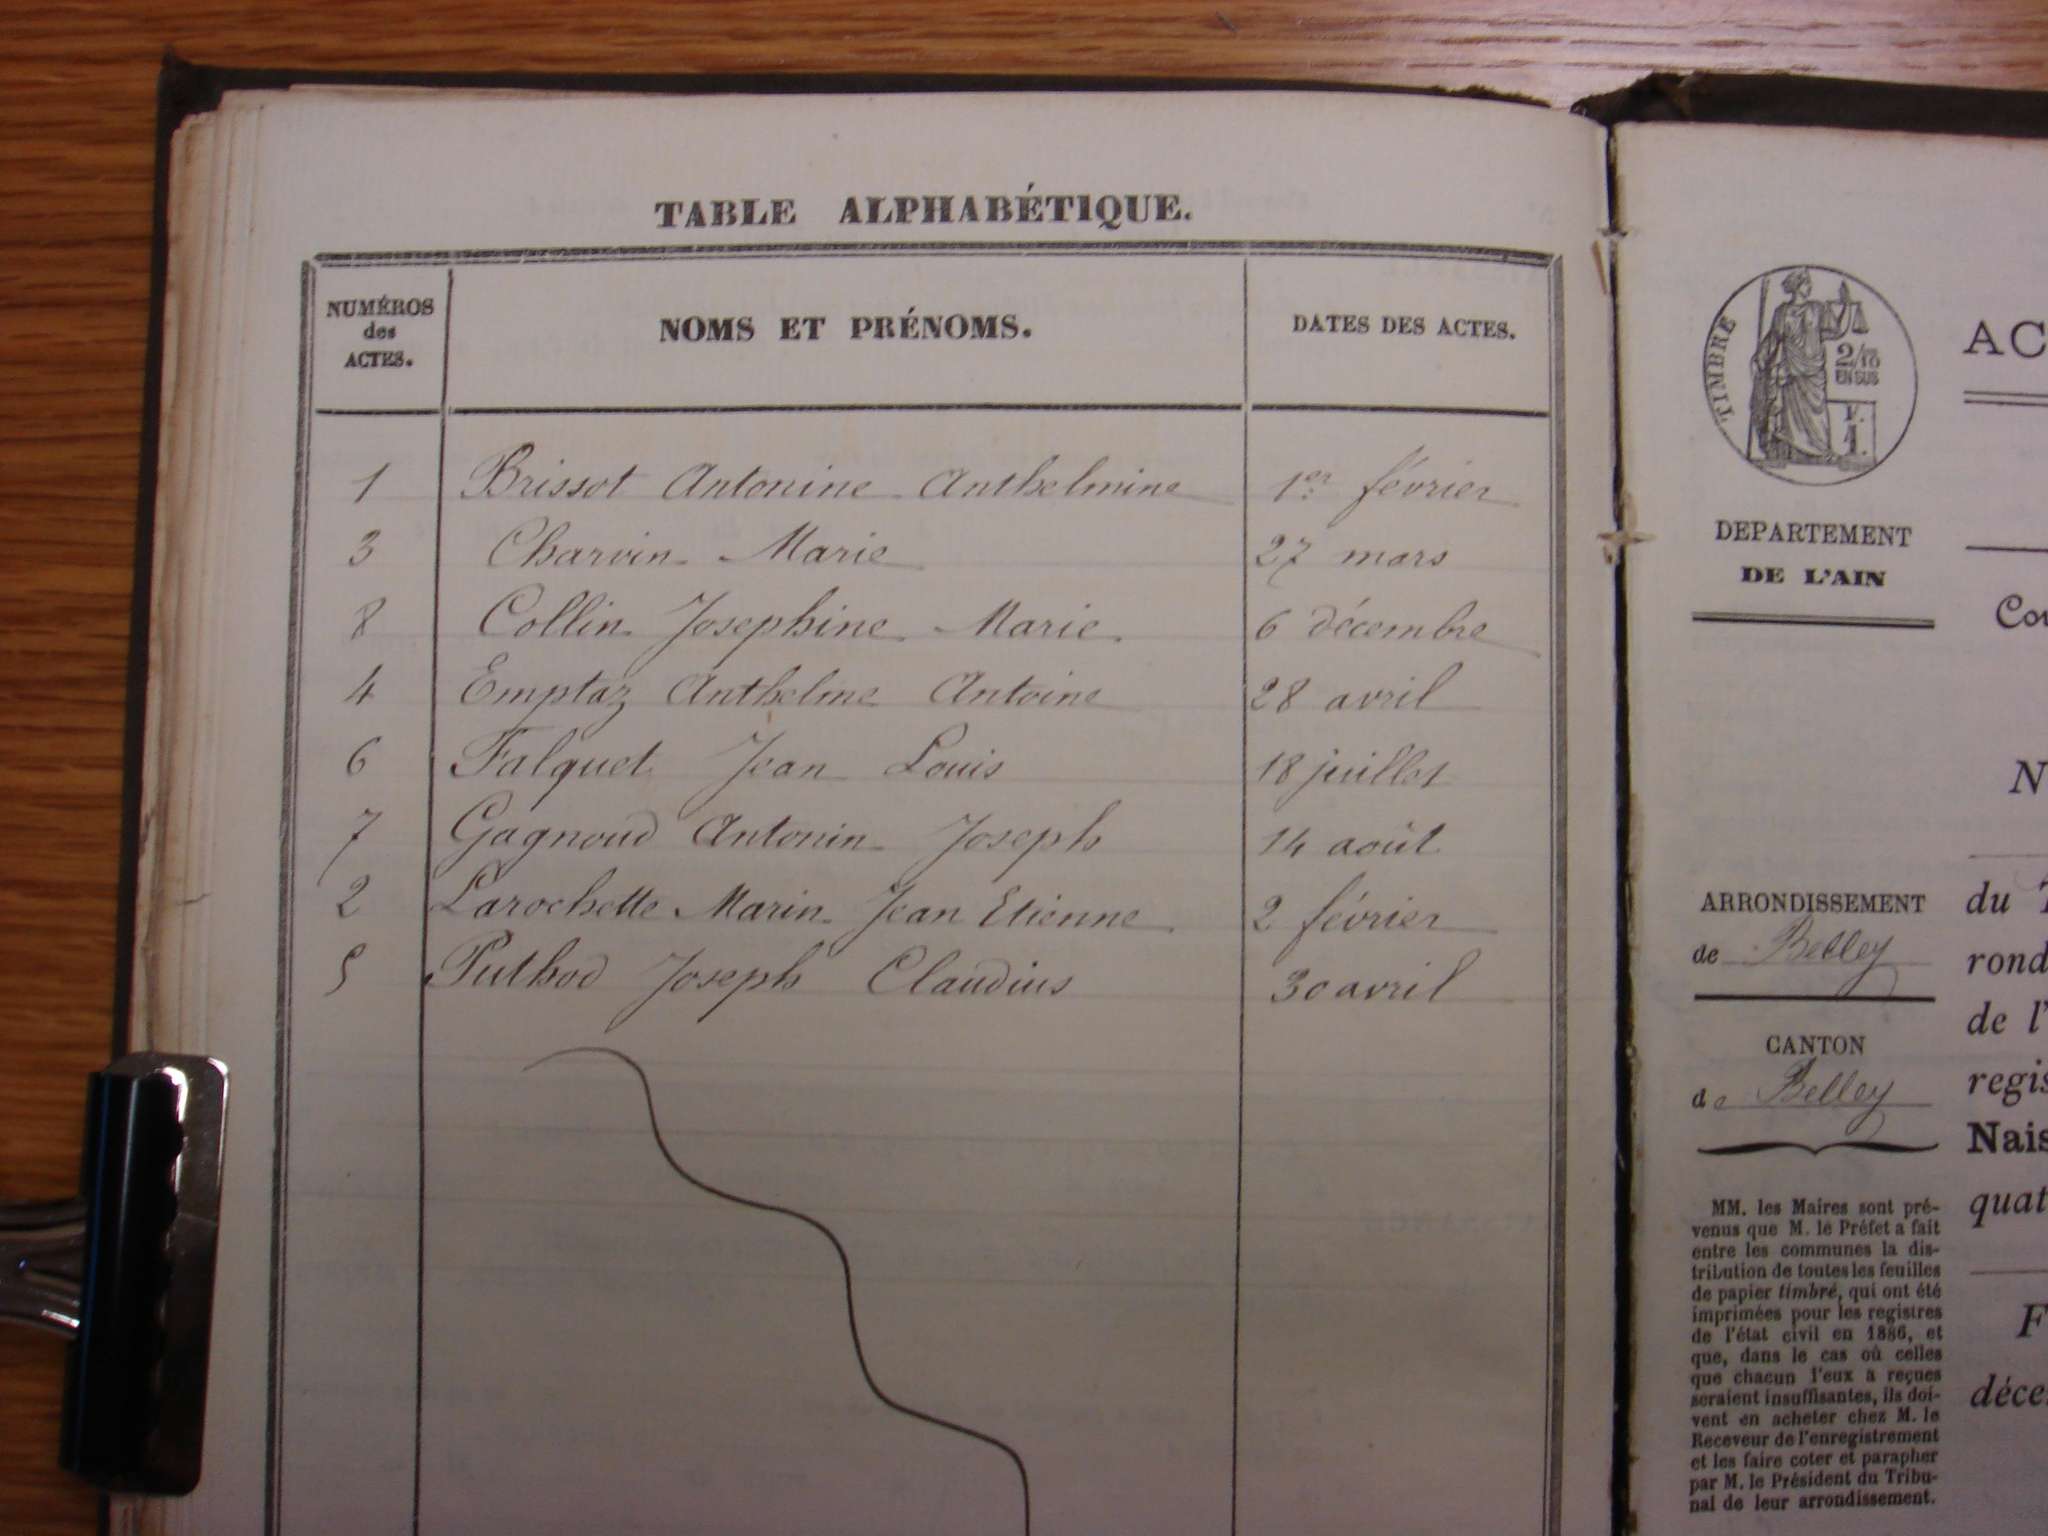 TABLE ALPHABÉTIQUE.
NUMÉROS des ACTES. NOMS ET PRÉNOMS. DATES DES ACTES.
1 Brissot Antonine Anthelmine 1er février
3 Charvin Marie 27 mars
8 Collin Josephine Marie 6 décembre
4 Emptaz Anthelme Antoine 28 avril
6 Falquet Jean Louis 18 juillet
7 Gagnoud Antonin Joseph 14 août
2 Larochette Marin Jean Etienne 2 février
5 Puthod Joseph Claudius 30 avril
TIMBRE
2/10
EN SUS
F.
1.
DEPARTEMENT
DE L'AIN
ARRONDISSEMENT
de Belley
CANTON
de Belley
MM. les Maires sont pré-
venus que M. le Préfet a fait
entre les communes la dis-
tribution de toutes les feuilles
de papier timbré, qui ont été
imprimées pour les registres
de l'état civil en 1886, et
que, dans le cas où celles
que chacun l'eux a reçues
seraient insuffisantes, ils doi-
vent en acheter chez M. le
Receveur de l'enregistrement
et les faire coter et parapher
par M. le Président du Tribu-
nal de leur arrondissement.
AC
Co
N
du T
rond
de l'
regis
Nais
quat
F
déce